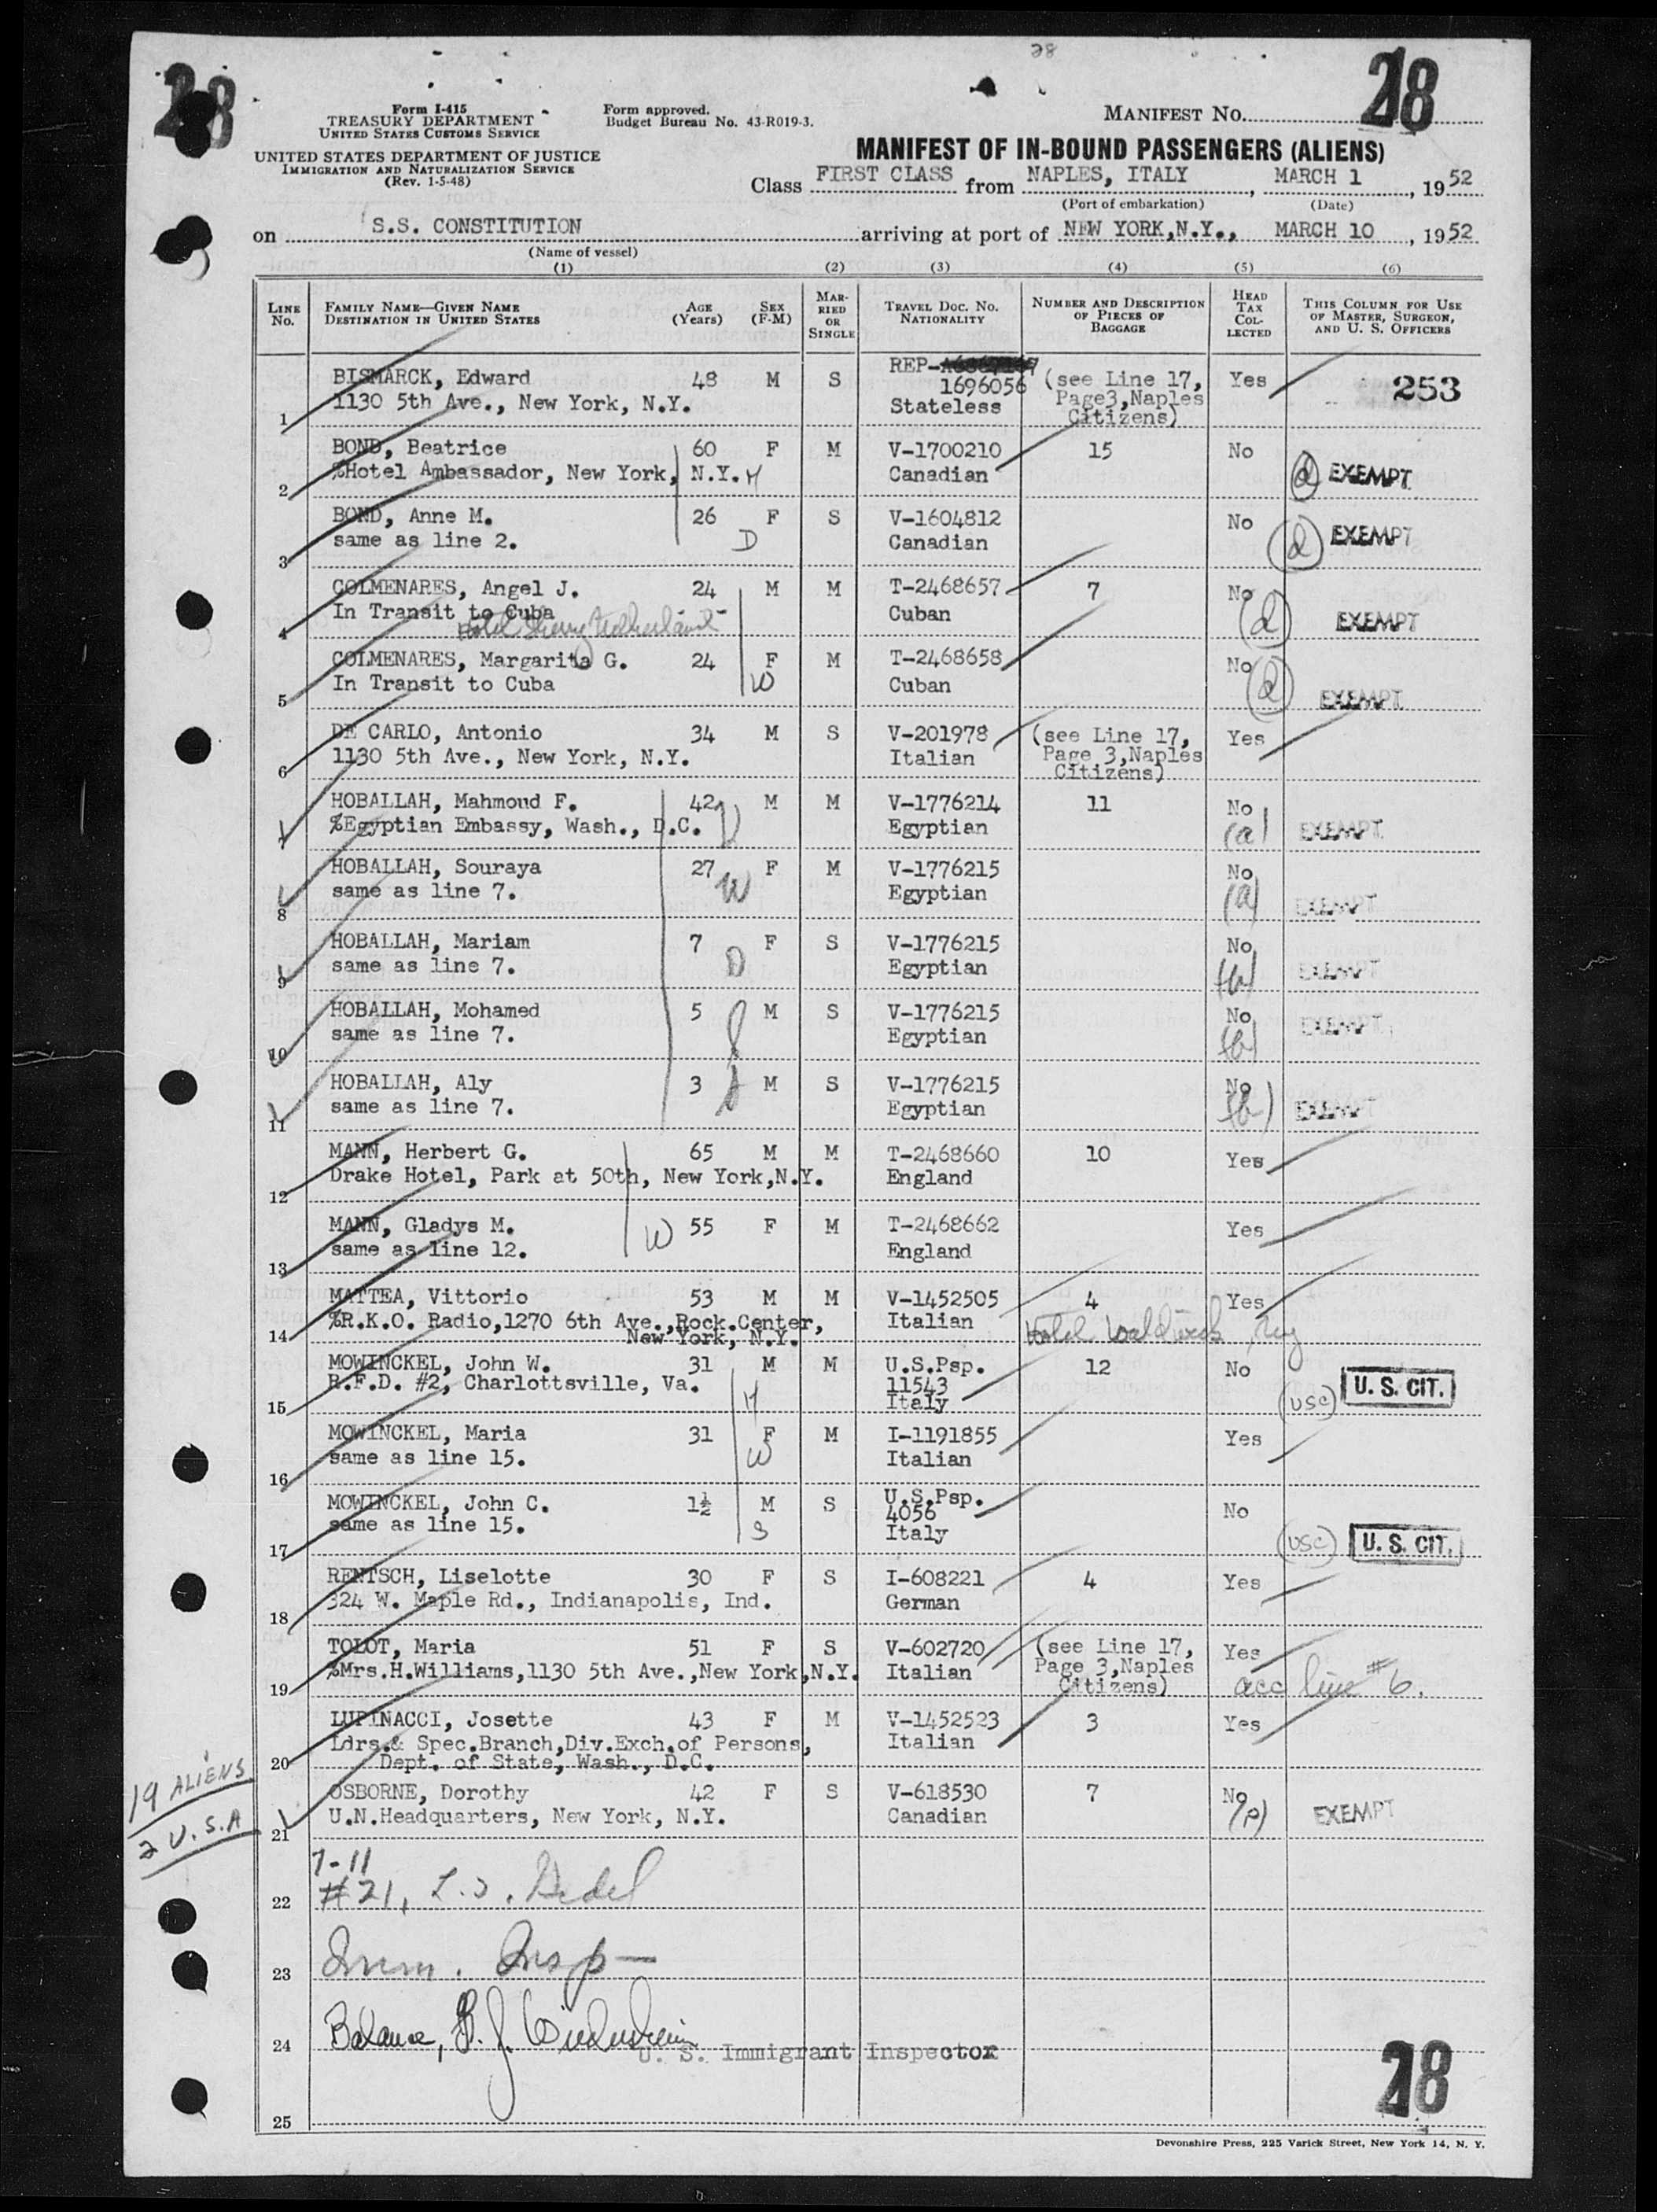 28
28
28
Form I-415
TREASURY DEPARTMENT
UNITED STATES CUSTOMS SERVICE
Form approved.
Budget Bureau No. 43-R019-3.
MANIFEST No.
UNITED STATES DEPARTMENT OF JUSTICE
IMMIGRATION AND NATURALIZATION SERVICE
(Rev. 1-5-48)
MANIFEST OF IN-BOUND PASSENGERS (ALIENS)
Class FIRST CLASS from NAPLES, ITALY, MARCH 1, 1952
(Port of embarkation) (Date)
on S.S. CONSTITUTION arriving at port of NEW YORK,N.Y., MARCH 10, 1952
(Name of vessel)
(1) (2) (3) (4) (5) (6)
LINE No. FAMILY NAME—GIVEN NAME DESTINATION IN UNITED STATES AGE (Years) SEX (F-M) MARRIED OR SINGLE TRAVEL DOC. No. NATIONALITY NUMBER AND DESCRIPTION OF PIECES OF BAGGAGE HEAD TAX COLLECTED THIS COLUMN FOR USE OF MASTER, SURGEON, AND U. S. OFFICERS
1 BISMARCK, Edward 48 M S REP- 1696056 (see Line 17, Yes 253
1130 5th Ave., New York, N.Y. Stateless Page3,Naples Citizens)
2 BOND, Beatrice 60 F M V-1700210 15 No
%Hotel Ambassador, New York, N.Y. H Canadian (d) EXEMPT
3 BOND, Anne M. 26 F S V-1604812 No
same as line 2. D Canadian (d) EXEMPT
4 COLMENARES, Angel J. 24 M M T-2468657 7 No
In Transit to Cuba Cuban (d) EXEMPT
Hotel Sherry Netherland
5 COLMENARES, Margarita G. 24 F M T-2468658 No
In Transit to Cuba W Cuban (d) EXEMPT
6 DE CARLO, Antonio 34 M S V-201978 (see Line 17, Yes
1130 5th Ave., New York, N.Y. Italian Page 3,Naples Citizens)
7 HOBALLAH, Mahmoud F. 42 M M V-1776214 11 No
%Egyptian Embassy, Wash., D.C. Egyptian (a) EXEMPT
8 HOBALLAH, Souraya 27 F M V-1776215 No
same as line 7. W Egyptian (a) EXEMPT
9 HOBALLAH, Mariam 7 F S V-1776215 No
same as line 7. D Egyptian EXEMPT
10 HOBALLAH, Mohamed 5 M S V-1776215 No
same as line 7. Egyptian EXEMPT
11 HOBALLAH, Aly 3 M S V-1776215 No
same as line 7. Egyptian EXEMPT
12 MANN, Herbert G. 65 M M T-2468660 10 Yes
Drake Hotel, Park at 50th, New York,N.Y. England
13 MANN, Gladys M. 55 F M T-2468662 Yes
same as line 12. W England
14 MATTEA, Vittorio 53 M M V-1452505 4 Yes
%R.K.O. Radio,1270 6th Ave.,Rock.Center, Italian Hotel
New York, N.Y.
15 MOWINCKEL, John W. 31 M M U.S.Psp. 12 No
R.F.D. #2, Charlottsville, Va. H 11543 (USC) U. S. CIT.
Italy
16 MOWINCKEL, Maria 31 F M I-1191855 Yes
same as line 15. W Italian
17 MOWINCKEL, John C. 1½ M S U.S.Psp. No
same as line 15. S 4056 (USC) U. S. CIT.
Italy
18 RENTSCH, Liselotte 30 F S I-608221 4 Yes
324 W. Maple Rd., Indianapolis, Ind. German
19 TOLOT, Maria 51 F S V-602720 (see Line 17, Yes
%Mrs.H.Williams,1130 5th Ave.,New York,N.Y. Italian Page 3,Naples Citizens) acc line #6.
20 LUPINACCI, Josette 43 F M V-1452523 3 Yes
Ldrs.& Spec.Branch,Div.Exch.of Persons, Italian
Dept. of State, Wash., D.C.
21 OSBORNE, Dorothy 42 F S V-618530 7 No
U.N.Headquarters, New York, N.Y. Canadian EXEMPT
19 ALIENS
2 U.S.A
7-11
22 #21,
23 Imm. Insp
24 Balance,
U. S. Immigrant Inspector
25
28
Devonshire Press, 225 Varick Street, New York 14, N. Y.